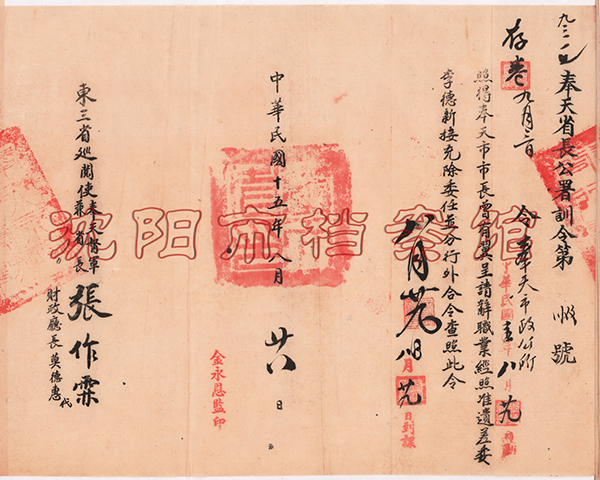 奉天省長公署訓令第 號
令奉天市政公所
存卷 九月二日
照得奉天市市長曾有翼呈請辭職業經照准遺差委
李德新接充除委任並分行外合令查照此令
八月
日到課
中華民國十五年八月廿八日
金永恩監印
東三省巡閱使奉天督軍兼省長張作霖
財政廳長莫德惠代
沈阳市档案馆